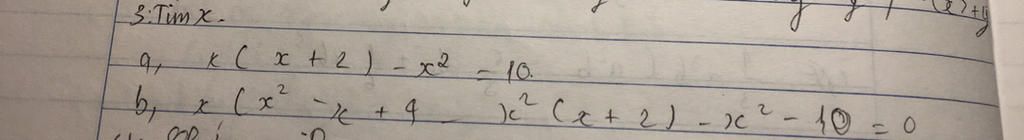 3: Tìm x.
a, x ( x + 2 ) - x² = 10.
b, x ( x² - x + 4 - x² ( x + 2 ) - x² - 10 = 0